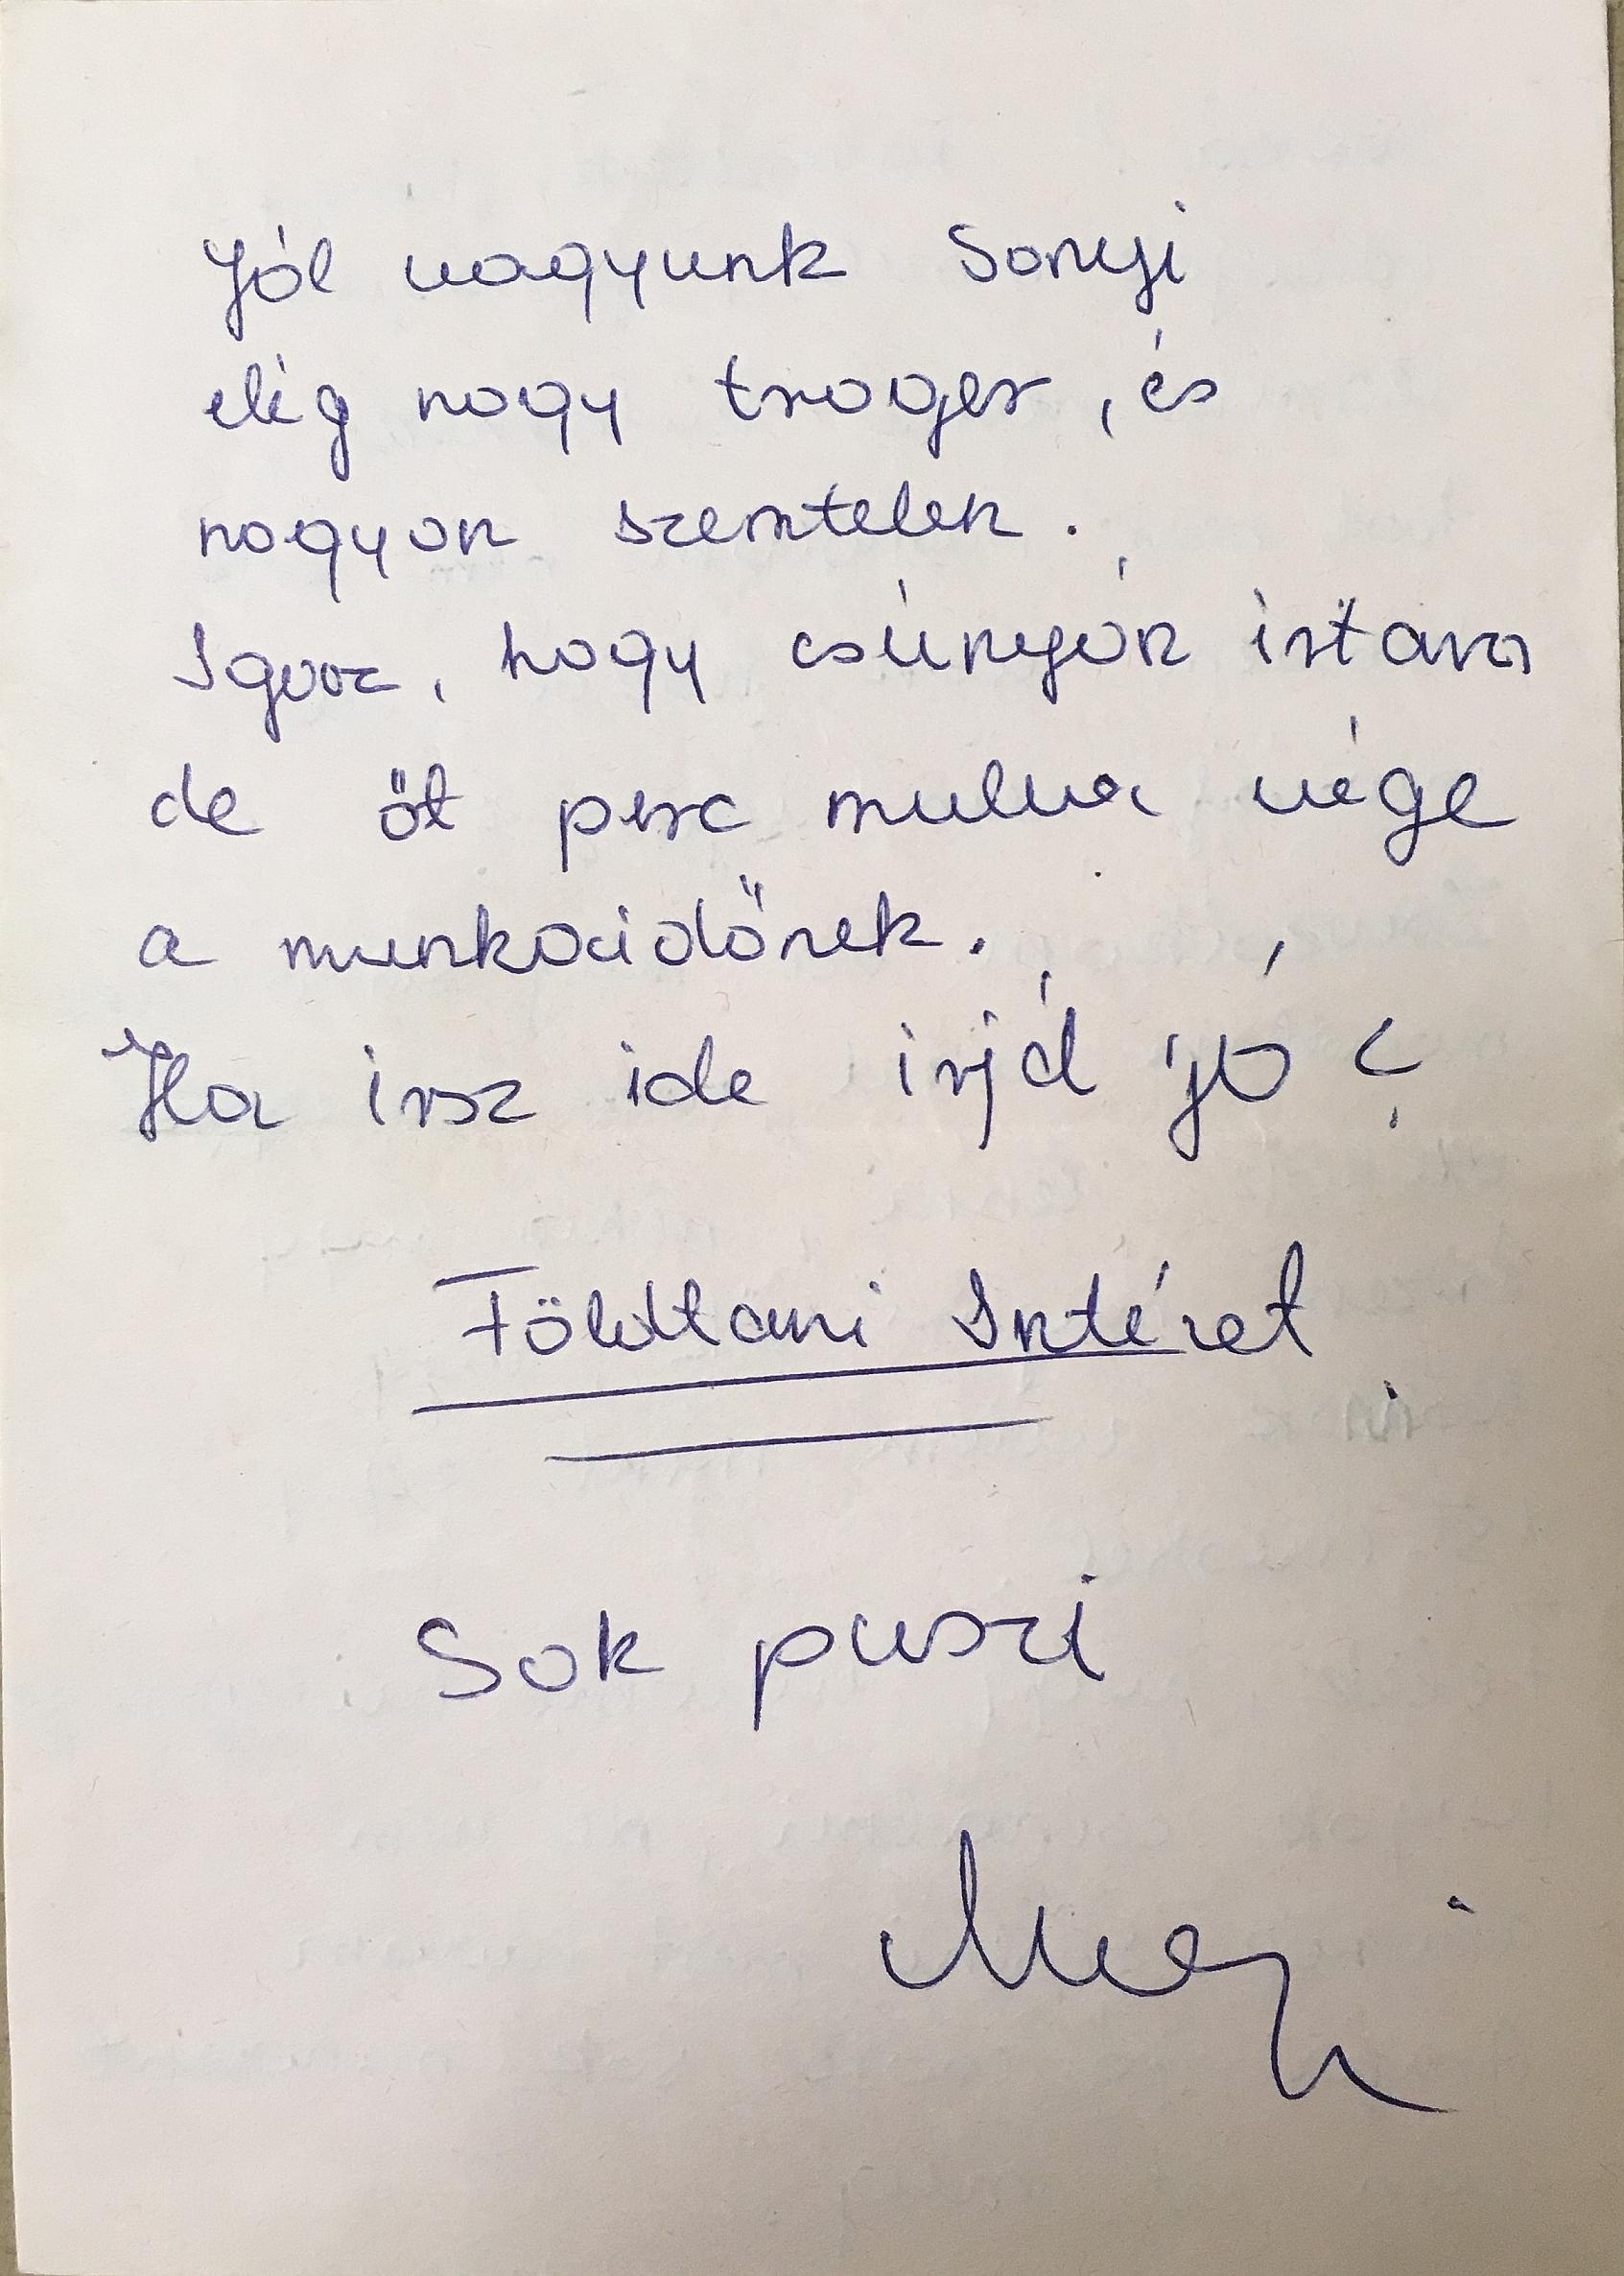 Jól vagyunk Sanyi
elég nagy troger, és
nagyon szemtelen.
Igaz, hogy csúnyán írtam
de öt perc mulva vége
a munkaidőnek.
Ha irsz ide irjál jó?
Földtani Intézet
Sok puszi
Magi